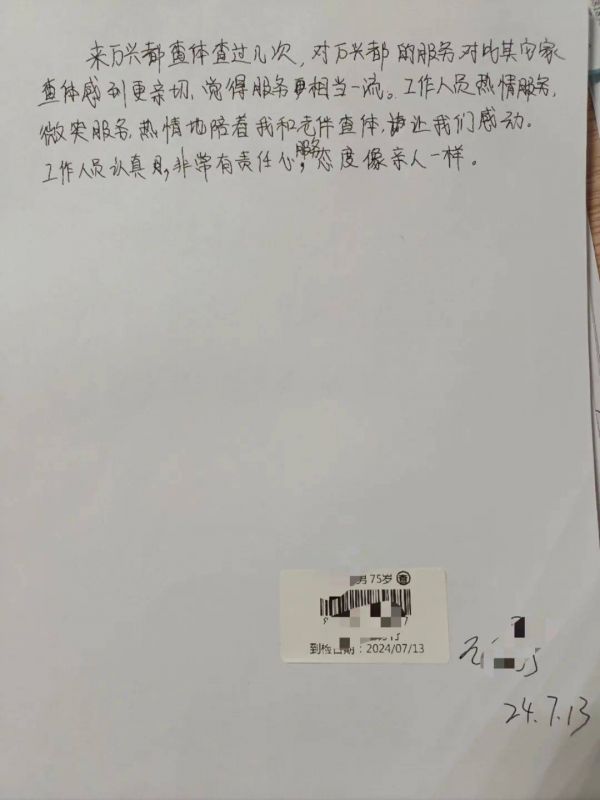 来万兴都查体查过几次,对万兴都的服务对比其它家
查体感到更亲切,觉得服务更相当一流。工作人员热情服务,
微笑服务,热情地陪着我和老伴查体,让我们感动。
工作人员认真,非常有责任心,服务态度像亲人一样。
男 75岁 查
到检日期:2024/07/13
24.7.13